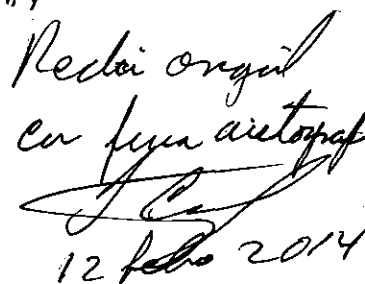 Recibi original
con firma autografa
12 febrero 2014